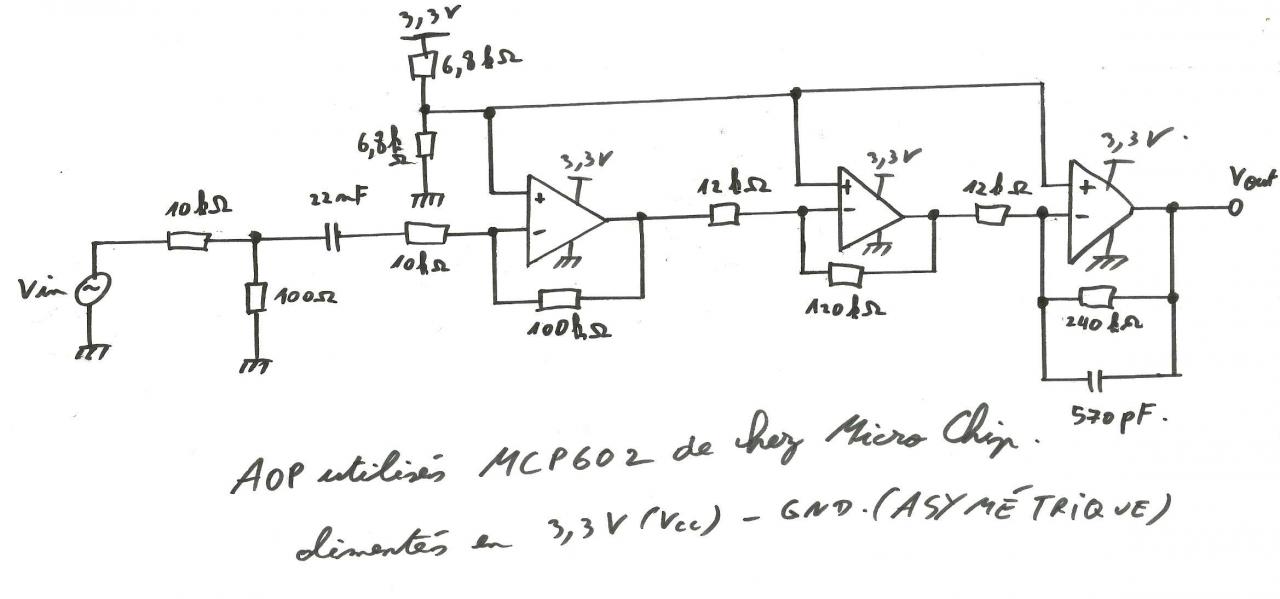 3,3V
6,8kΩ
6,8k
Ω
3,3V
3,3V
3,3V.
10kΩ
22nF
12kΩ
12kΩ
Vout
10kΩ
Vin
100Ω
100kΩ
120kΩ
240kΩ
570pF.
+
-
+
-
+
-
~
AOP utilisés MCP602 de chez Micro Chip.
alimentés en 3,3V (Vcc) - GND. (ASYMÉTRIQUE)